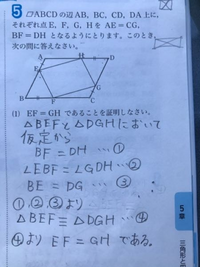 5 ▱ABCDの辺AB、BC、CD、DA上に、
それぞれ点E、F、G、HをAE=CG、
BF=DHとなるようにとります。このとき、
次の問に答えなさい。
A H D
E
G
B F C
(1) EF=GHであることを証明しなさい。
△BEFと△DGHにおいて
仮定から
BF=DH …①
∠EBF=∠GDH …②
BE=DG …③
①、②、③より
△BEF≡△DGH …④
④より EF=GHである。
5章